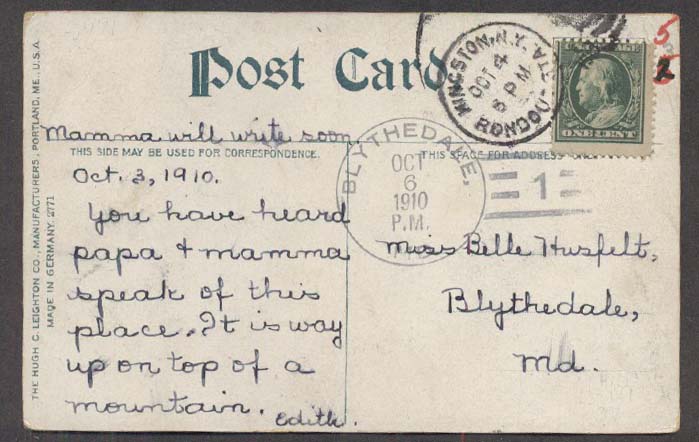 Post Card
Mamma will write soon
THIS SIDE MAY BE USED FOR CORRESPONDENCE.
Oct. 3, 1910.
You have heard
papa & mamma
speak of this
place. It is way
up on top of a
mountain. Edith.
THIS SPACE FOR ADDRESS
Miss Belle Husfelt,
Blythedale,
Md.
KINGSTON, N.Y.
OCT 4
8 PM
RONDOUT STA.
BLYTHEDALE,
OCT
6
1910
P.M.
1
ONE CENT
5
2
THE HUGH C. LEIGHTON CO., MANUFACTURERS, PORTLAND, ME., U.S.A.
MADE IN GERMANY. 2771